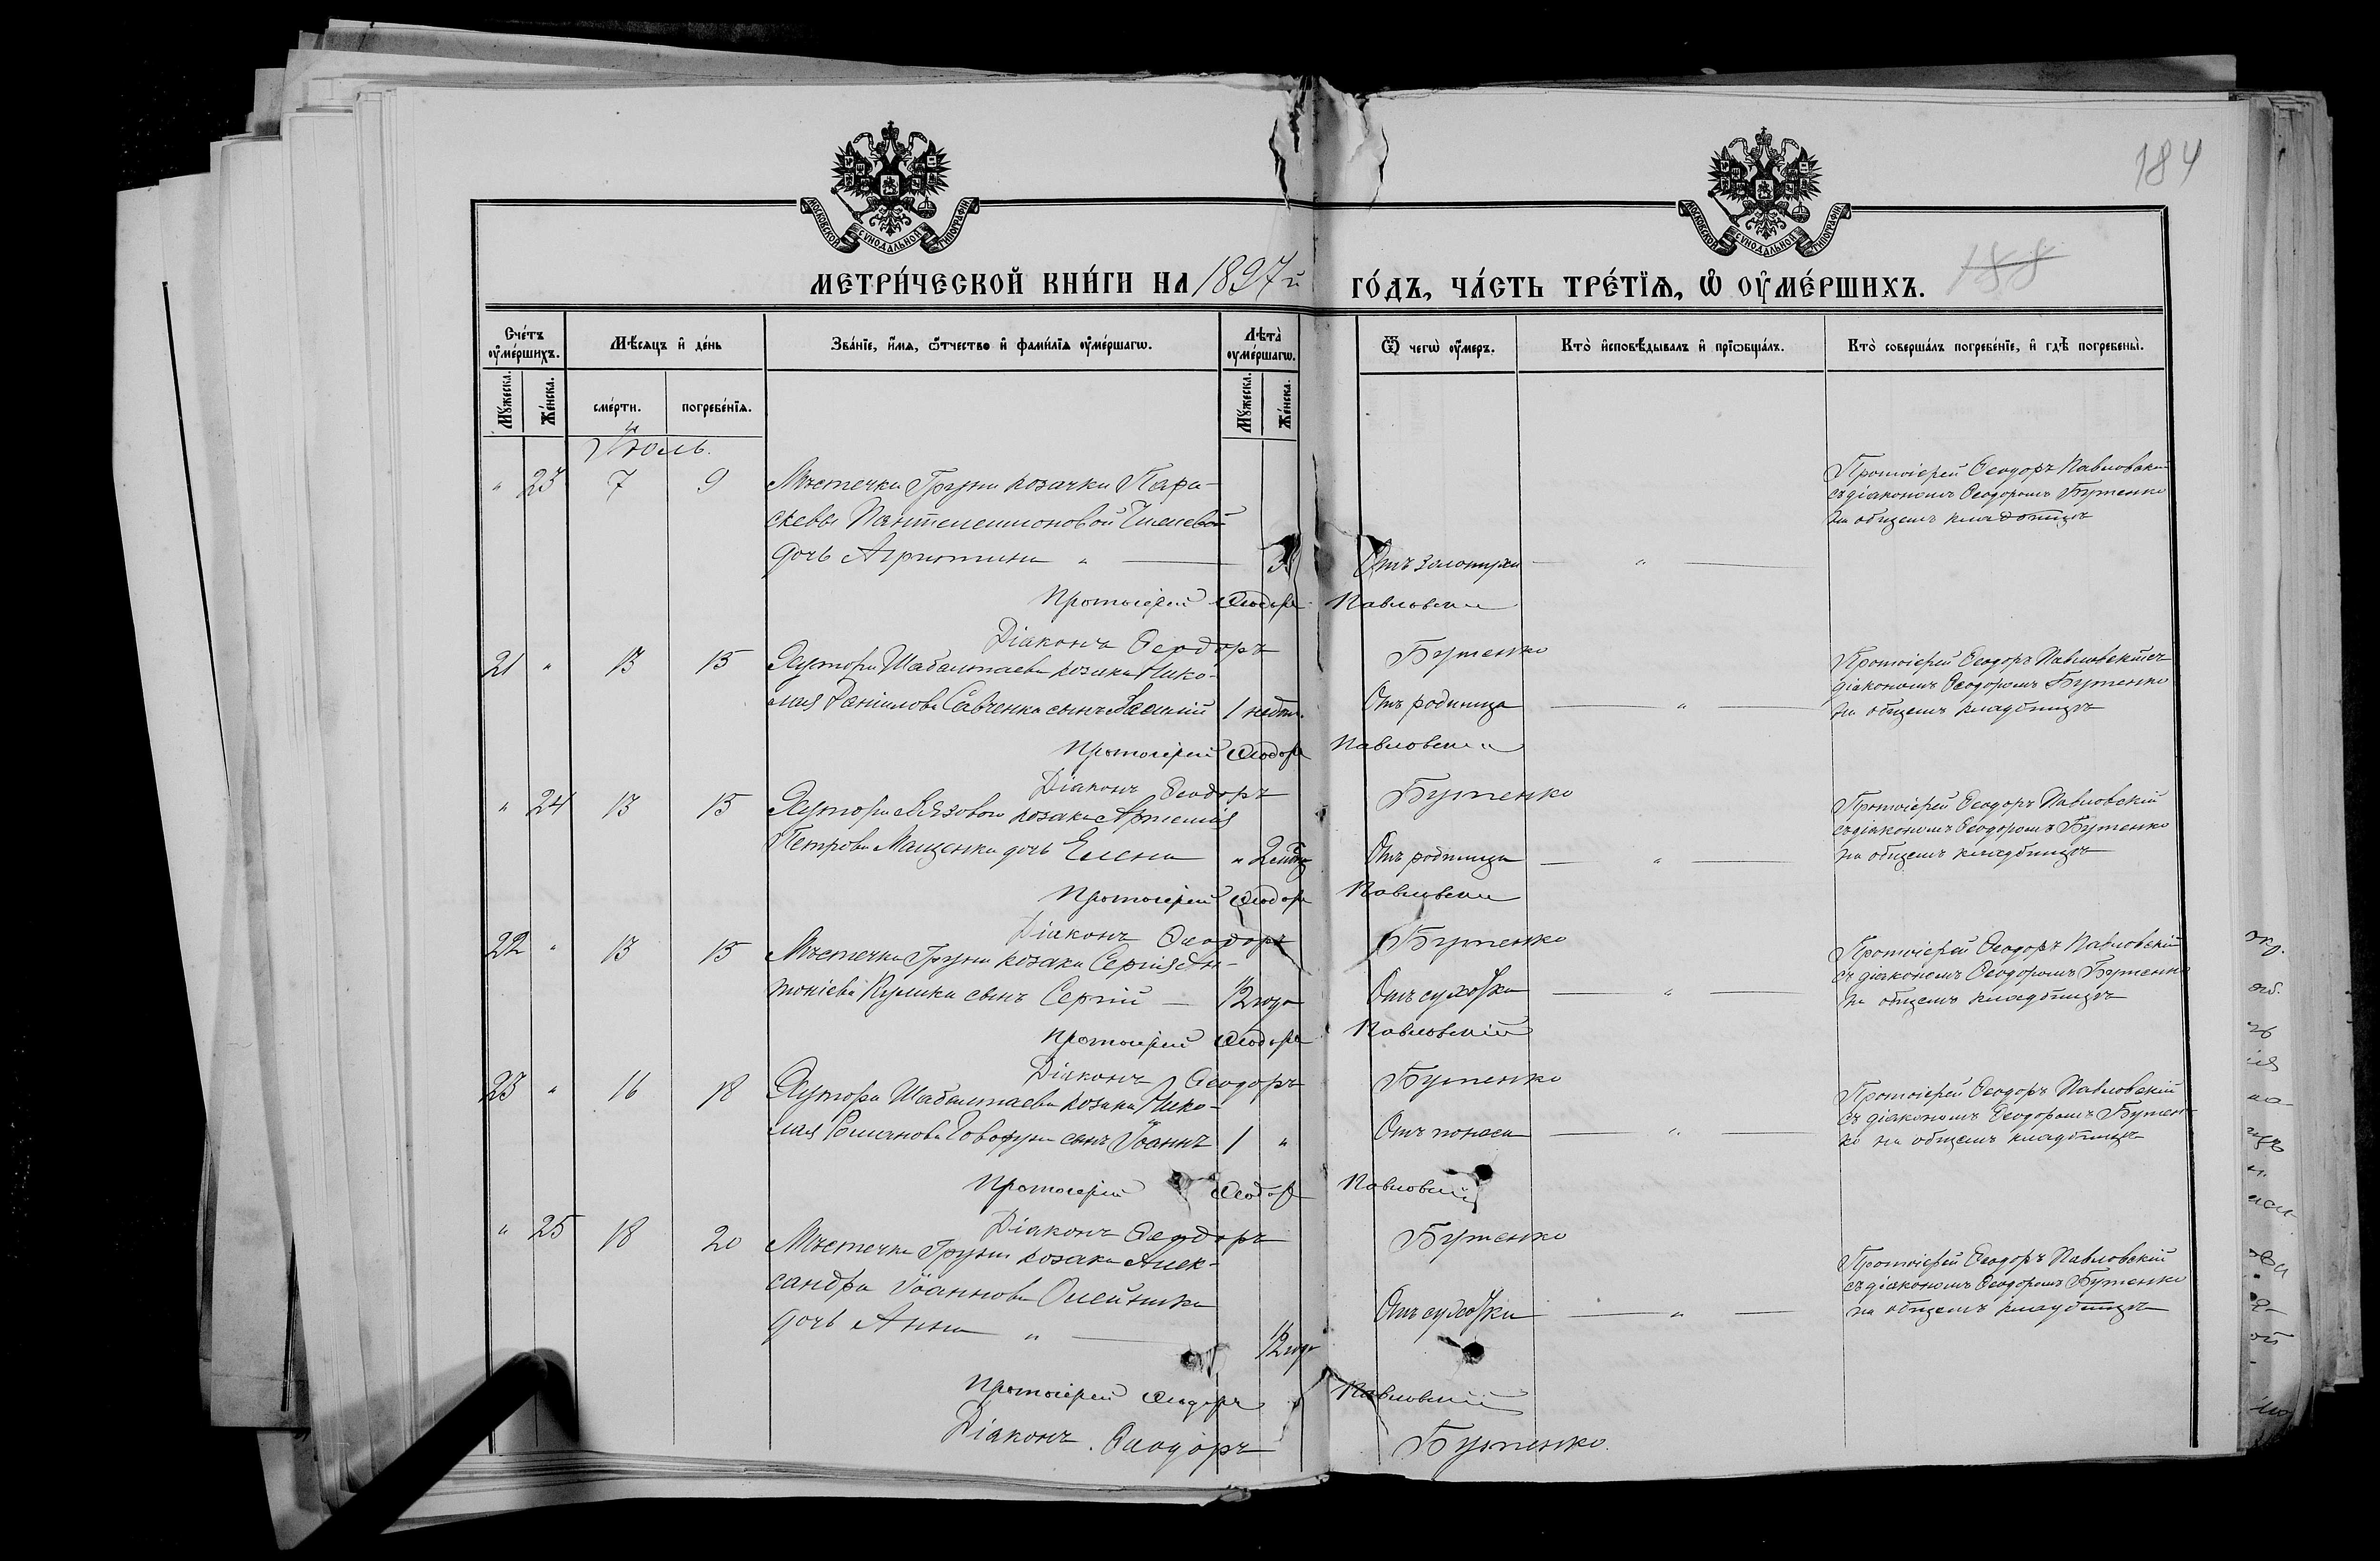 184
МОСКОВСКОЙ СѴНОДАЛЬНОЙ ТИПОГРАФІИ
МОСКОВСКОЙ СѴНОДАЛЬНОЙ ТИПОГРАФІИ
МЕТРИ́ЧЕСКОЙ КНИ́ГИ НА 1897й ГО́ДЪ, ЧА́СТЬ ТРЕ́ТЇѦ, Ѽ ОУ҆МЕ́РШИХЪ.
188
Сче́тъ оу҆ме́ршихъ.
Мѣ́сяцъ и҆ де́нь
Зва́нїе, и҆́мѧ, ѻ҆́тчество и҆ фами́лїѧ оу҆ме́ршагѡ.
Лѣта̀ оу҆ме́ршагѡ.
Ѿ чегѡ̀ оу҆́меръ.
Кто̀ и҆сповѣ́дывалъ и҆ прїѡбща́лъ.
Кто̀ соверша́лъ погребе́нїе, и҆ гдѣ̀ погребены̀.
Мꙋ́жеска.
Же́нска.
сме́рти.
погребе́нїѧ.
Мꙋ́жеска.
Же́нска.
Іюль.
" 23 7 9 Мѣстечка Груни козачки Пара-
скевы Пантелеимоновой
дочь Агрипина "
"
Протоіерей Ѳеодоръ Павловскій
съ діакономъ Ѳеодоромъ Бутенко
на общемъ кладбищѣ
Протоіерей Ѳеодоръ Павловскій
Діаконъ Ѳеодоръ Бутенко
21 " 13 15 Хутора Шабалтаева козака Нико-
лая Данилова Савченка сынъ 1 недѣл. Отъ родимца "
Протоіерей Ѳеодоръ Павловскій съ
діакономъ Ѳеодоромъ Бутенко
на общемъ кладбищѣ
Протоіерей Ѳеодоръ Павловскій
Діаконъ Ѳеодоръ Бутенко
" 24 13 15 Хутора козака Артемія
Петрова Мащенка дочь Елена " 2 Отъ родимца "
Протоіерей Ѳеодоръ Павловскій
съ діакономъ Ѳеодоромъ Бутенко
на общемъ кладбищѣ
Протоіерей Ѳеодоръ Павловскій
Діаконъ Ѳеодоръ Бутенко
22 " 13 15 Мѣстечка Груни козака Сергія Ан-
тоніева Кулика сынъ Сергій 1/2 года Отъ сухотки "
Протоіерей Ѳеодоръ Павловскій
съ діакономъ Ѳеодоромъ Бутенко
на общемъ кладбищѣ
Протоіерей Ѳеодоръ Павловскій
Діаконъ Ѳеодоръ Бутенко
23 " 16 18 Хутора Шабалтаева козака Нико-
лая Романова Говоруна сынъ Іоаннъ 1 " Отъ поноса "
Протоіерей Ѳеодоръ Павловскій
съ діакономъ Ѳеодоромъ Бутен-
ко на общемъ кладбищѣ
Протоіерей Ѳеодоръ Павловскій
Діаконъ Ѳеодоръ Бутенко
" 25 18 20 Мѣстечка Груни козака Алек-
сандра Іоаннова Олейника
дочь Анна " 1/2 года Отъ сухотки "
Протоіерей Ѳеодоръ Павловскій
съ діакономъ Ѳеодоромъ Бутенко
на общемъ кладбищѣ
Протоіерей Ѳеодоръ Павловскій
Діаконъ Ѳеодоръ Бутенко.